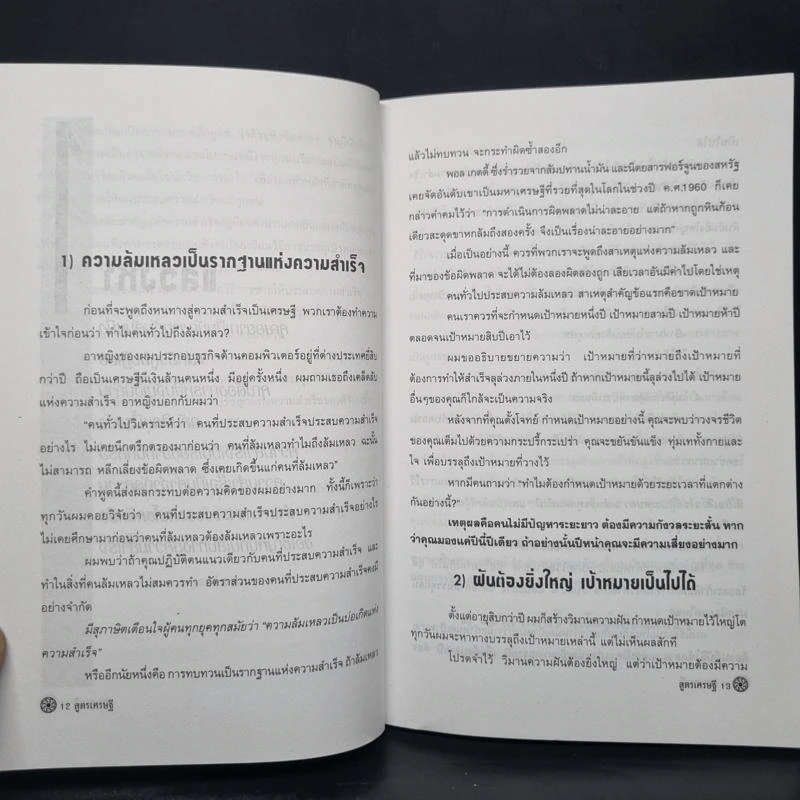 1) ความล้มเหลวเป็นรากฐานแห่งความสำเร็จ
ก่อนที่จะพูดถึงหนทางสู่ความสำเร็จเป็นเศรษฐี พวกเราต้องทำความ
เข้าใจก่อนว่า ทำไมคนทั่วไปถึงล้มเหลว?
อาหญิงของผมประกอบธุรกิจด้านคอมพิวเตอร์อยู่ที่ต่างประเทศยี่สิบ
กว่าปี ถือเป็นเศรษฐีนีเงินล้านคนหนึ่ง มีอยู่ครั้งหนึ่ง ผมถามเธอถึงเคล็ดลับ
แห่งความสำเร็จ อาหญิงบอกกับผมว่า
"คนทั่วไปวิเคราะห์ว่า คนที่ประสบความสำเร็จประสบความสำเร็จ
อย่างไร ไม่เคยนึกตรึกตรองมาก่อนว่า คนที่ล้มเหลวทำไมถึงล้มเหลว ฉะนั้น
ไม่สามารถ หลีกเลี่ยงข้อผิดพลาด ซึ่งเคยเกิดขึ้นแก่คนที่ล้มเหลว"
คำพูดนี้ส่งผลกระทบต่อความคิดของผมอย่างมาก ทั้งนี้ก็เพราะว่า
ทุกวันผมคอยวิจัยว่า คนที่ประสบความสำเร็จประสบความสำเร็จอย่างไร
ไม่เคยศึกษามาก่อนว่าคนที่ล้มเหลวต้องล้มเหลวเพราะอะไร
ผมพบว่าถ้าคุณปฏิบัติตนแนวเดียวกับคนที่ประสบความสำเร็จ และ
ทำในสิ่งที่คนล้มเหลวไม่สมควรทำ อัตราส่วนของคนที่ประสบความสำเร็จคงมี
อย่างจำกัด
มีสุภาษิตเตือนใจผู้คนทุกยุคทุกสมัยว่า "ความล้มเหลวเป็นบ่อเกิดแห่ง
ความสำเร็จ"
หรืออีกนัยหนึ่งคือ การทบทวนเป็นรากฐานแห่งความสำเร็จ ถ้าล้มเหลว
12 สูตรเศรษฐี
แล้วไม่ทบทวน จะกระทำผิดซ้ำสองอีก
พอล เกตตี้ ซึ่งร่ำรวยจากสัมปทานน้ำมัน และนิตยสารฟอร์จูนของสหรัฐ
เคยจัดอันดับเขาเป็นมหาเศรษฐีที่รวยที่สุดในโลกในช่วงปี ค.ศ.1960 ก็เคย
กล่าวคำคมไว้ว่า "การดำเนินการผิดพลาดไม่น่าละอาย แต่ถ้าหากถูกหินก้อน
เดียวสะดุดขาหกล้มถึงสองครั้ง จึงเป็นเรื่องน่าละอายอย่างมาก"
เมื่อเป็นอย่างนี้ ควรที่พวกเราจะพูดถึงสาเหตุแห่งความล้มเหลว และ
ที่มาของข้อผิดพลาด จะได้ไม่ต้องลองผิดลองถูก เสียเวลาอันมีค่าไปโดยใช่เหตุ
คนทั่วไปประสบความล้มเหลว สาเหตุสำคัญข้อแรกคือขาดเป้าหมาย
คนเราควรที่จะกำหนดเป้าหมายหนึ่งปี เป้าหมายสามปี เป้าหมายห้าปี
ตลอดจนเป้าหมายสิบปีเอาไว้
ผมขออธิบายขยายความว่า เป้าหมายที่ว่าหมายถึงเป้าหมายที่
ต้องการทำให้สำเร็จลุล่วงภายในหนึ่งปี ถ้าหากเป้าหมายนี้ลุล่วงไปได้ เป้าหมาย
อื่นๆของคุณก็ใกล้จะเป็นความจริง
หลังจากที่คุณตั้งโจทย์ กำหนดเป้าหมายอย่างนี้ คุณจะพบว่าวงจรชีวิต
ของคุณเต็มไปด้วยความกระปรี้กระเปร่า คุณจะขยันขันแข็ง ทุ่มเททั้งกายและ
ใจ เพื่อบรรลุถึงเป้าหมายที่วางไว้
หากมีคนถามว่า "ทำไมต้องกำหนดเป้าหมายด้วยระยะเวลาที่แตกต่าง
กันอย่างนี้?"
เหตุผลคือคนไม่มีปัญหาระยะยาว ต้องมีความกังวลระยะสั้น หาก
ว่าคุณมองแค่ปีนี้ปีเดียว ถ้าอย่างนั้นปีหน้าคุณจะมีความเสี่ยงอย่างมาก
2) ฝันต้องยิ่งใหญ่ เป้าหมายเป็นไปได้
ตั้งแต่อายุสิบกว่าปี ผมก็สร้างวิมานความฝัน กำหนดเป้าหมายไว้ใหญ่โต
ทุกวันผมจะหาทางบรรลุถึงเป้าหมายเหล่านี้ แต่ไม่เห็นผลสักที
โปรดจำไว้ วิมานความฝันต้องยิ่งใหญ่ แต่ว่าเป้าหมายต้องมีความ
สูตรเศรษฐี 13